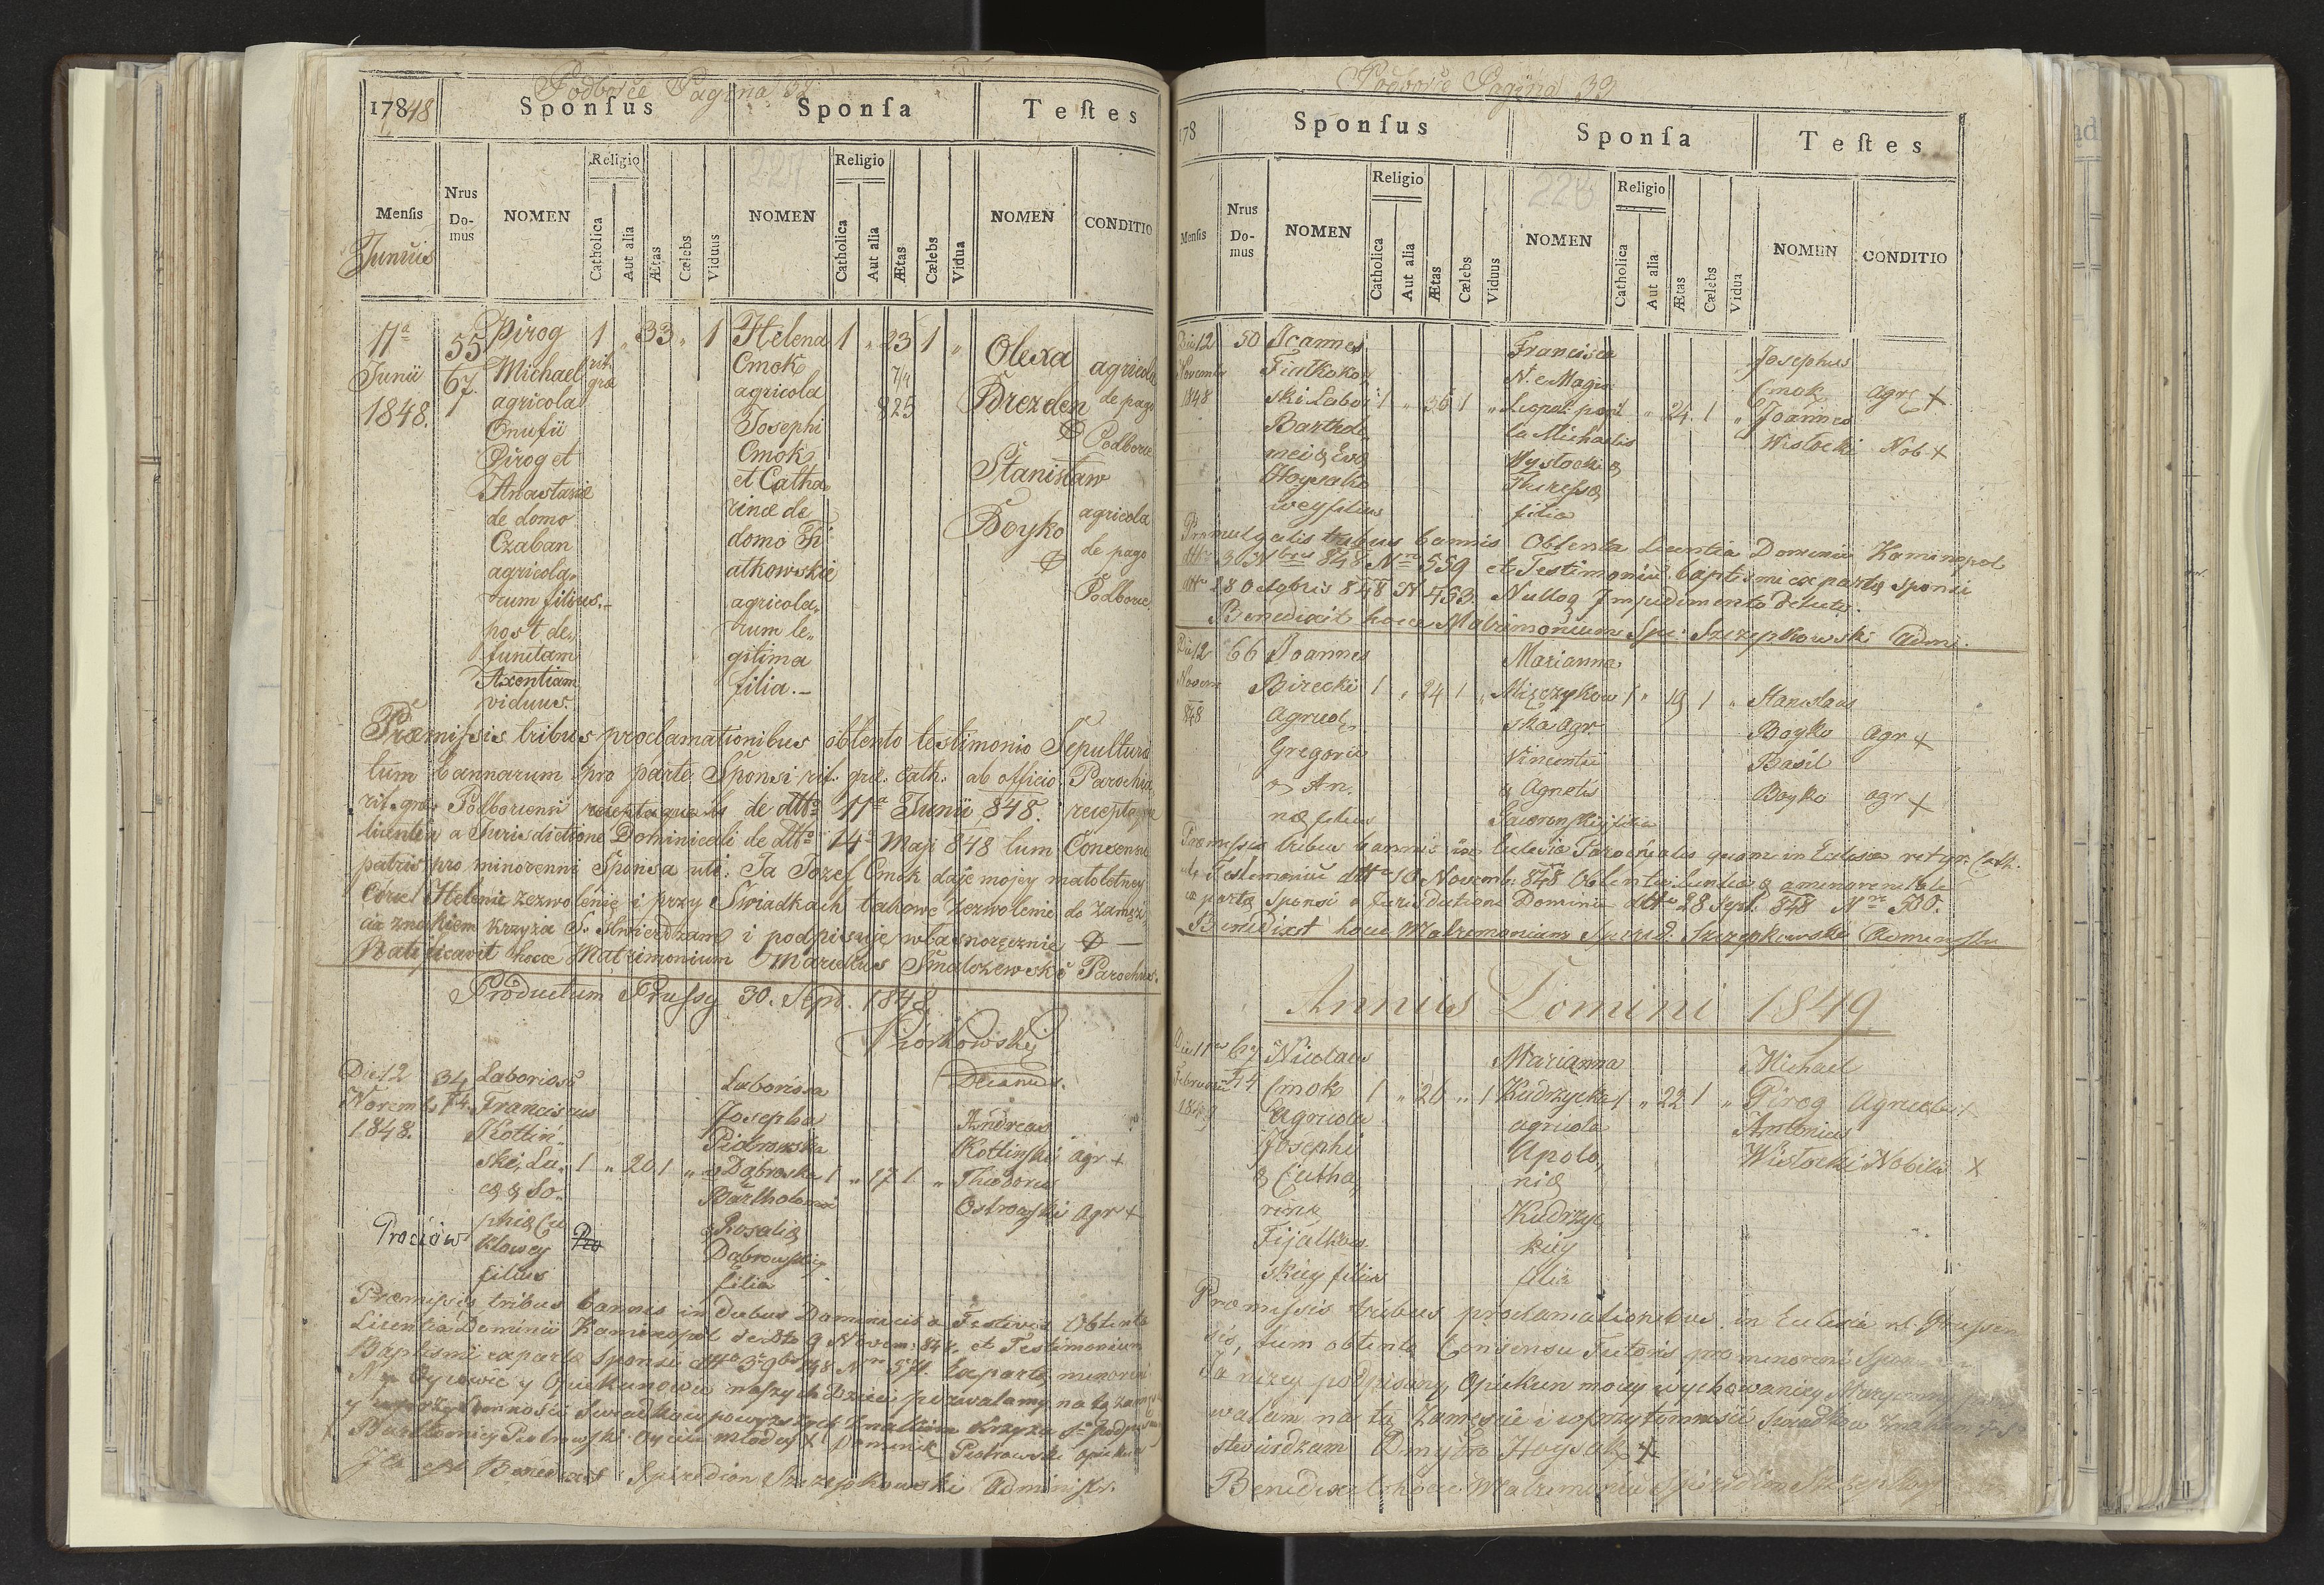 Podborce Pagina 32
178 48
1
Sponsus
Sponsa
Testes
Mensis
Junius
Nrus Do-mus
NOMEN
Religio
Catholica
Aut alia
Ætas
Cælebs
Viduus
NOMEN
Religio
Catholica
Aut alia
Ætas
Cælebs
Vidua
NOMEN
CONDITIO
11ª
Junii
1848.
55
67.
Pirog
Michael
agricola
Onufii
Pirog et
Anastasiæ
de domo
Czaban
agricola„
rum filius.–
post de„
functam
Axentiam
viduus.
1 „ 33 „ 1
rit.
græ
Helena
Cmok
agricola
Josephi
Cmok
et Catha„
rinæ de
domo Fi
alkowskie
agricola„
rum le„
gitima
filia.–
1 „ 23 1 „
7/4
825
Olexa
Brezden
Stanisław
Boyko
agricola
de pago
Podborce
agricola
de pago
Podborce.
Præmissis tribus proclamationibus obtento testimonio Sepulturæ
tum bannarum pro parte Sponsi rit. græ. cath. ab officio Parochia
rit. græ. Podborcensi receptaque de ddto 11ª Junii 848. receptaque
licentia a Jurisdictione Dominicali de ddto 14ª Maji 848 tum Consensu
patris pro minorenni Sponsa uti: Ja Jozef Cmok daje mojey małoletney
Córce Helenie zezwolenie i przy Swiadkach takowe zezwolenie do zamęż
cia znakiem krzyża S. stwierdzam i podpisuje własnoręcznie
Ratificavit hocce Matrimonium Marcellus Smalczewski Parochus.
Productum Prussy 30. Sept. 1848
Piórkowski
Decanus.
Die 12
Novemb
1848.
34
74.
Laboriosus
Franciscus
Kotliń„
ski, Lu„
cæ & So„
phiæ Cu
klowey
filius
Prociów
Pro
1 „ 20 1 „
Laboriosa
Josepha
Piotrowska
a Dąbroska
Bartholomei
& Rosaliæ
Dąbrowskiej
filia
1 „ 17 1 „
Andreas
Kotlinski agr. +
Theodorus
Ostrowski Agr +
Præmissis tribus bannis in duabus Dominicis a Festivis Obtenta
Licentia Dominii Kamionopol de ddto 9 Novem: 848. et Testimonium
Baptismi ex parte Sponsi
Oycowie y Opiekunowie naszych Dzieci pozwalamy na tę
y Swiadkow powyższych Znakiem Krzyża S.
Bartłomiej Piotrowski Oyciec młodey + Dominik Piotrowski opiekun
Benedixit Spiridion Szczepkowski Administr.
Podborce Pagina 33
178
Sponsus
Sponsa
Testes
Mensis
Nrus Do-mus
NOMEN
Religio
Catholica
Aut alia
Ætas
Cælebs
Viduus
NOMEN
Religio
Catholica
Aut alia
Ætas
Cælebs
Vidua
NOMEN
CONDITIO
Die 12
Novemb
1848
50
Joannes
Fialkow„
ski Labor
Bartholo„
mei & Evæ
Hoysako
wey filius
1 „ 36 1 „
Francisca
Michaelis
Wysłocki &
Theressæ
filia
„ 24 1 „
Josephus
Cmok agr +
Joannes
Wisłocki Nob +
Promulgatis tribus bannis Obtenta Licentia Dominii Kamionopol
ddto 3 Nbris 848 Nro 559 et Testimoniu baptismi ex parte sponsi
ddto 28 Octobris 848 N 453. Nulloq Impedimento Detecto.
Benedixit hocce Matrimonium Spi: Szczepkowski Adm.
Die 12
Novem
848
66
Joannes
Birecki
Agricol„
Gregorii
& An„
næ filius
1 „ 24 1 „
Marianna
Mięczykow
ska agr
Vincentii
& Agnetis
filia
1 „ 19 1 „
Stanislaus
Boyko agr +
Basil
Boyko agr +
Præmissis tribus bannis in Eclesia Parochialis quam in Eclesia rit. gr. Cath.
Testemoniu ddto 10 Novemb: 848
ex parte Sponsi a Jurisdictione Dominii ddto 28 Sept. 848 Nro 500.
Benedixit hocce Matrimonium Spirid. Szczepkowski Administr
Annus Domini 1849
Die 11
Februarii
1849
67
14
Nicolaus
Cmok
Agricola
Josephi
& Catha„
rinæ
Fijałkow„
skiey filius
1 „ 26 „ 1
Marianna
Kudrzycka
agricola
Apolo„
niæ
Kudrzyc„
kiey
filia
1 „ 22 1 „
Michael
Pirog Agricola +
Antonius
Wisłocki Nobilis X
Præmissis tribus proclamationibus in Eclesia rl. Prussen
sis, tum obtento Consensu Tutoris pro minoreni
Ja nizey podpisany Opiekun mocy wychowanicy Maryanny
walam na tę Zamęscie i w przytomnosci Swiadkow znakiem
stwierdzam Dmytro Hoysak +
Benedixit hocce Matrimoniu Spiridion Szczepkow